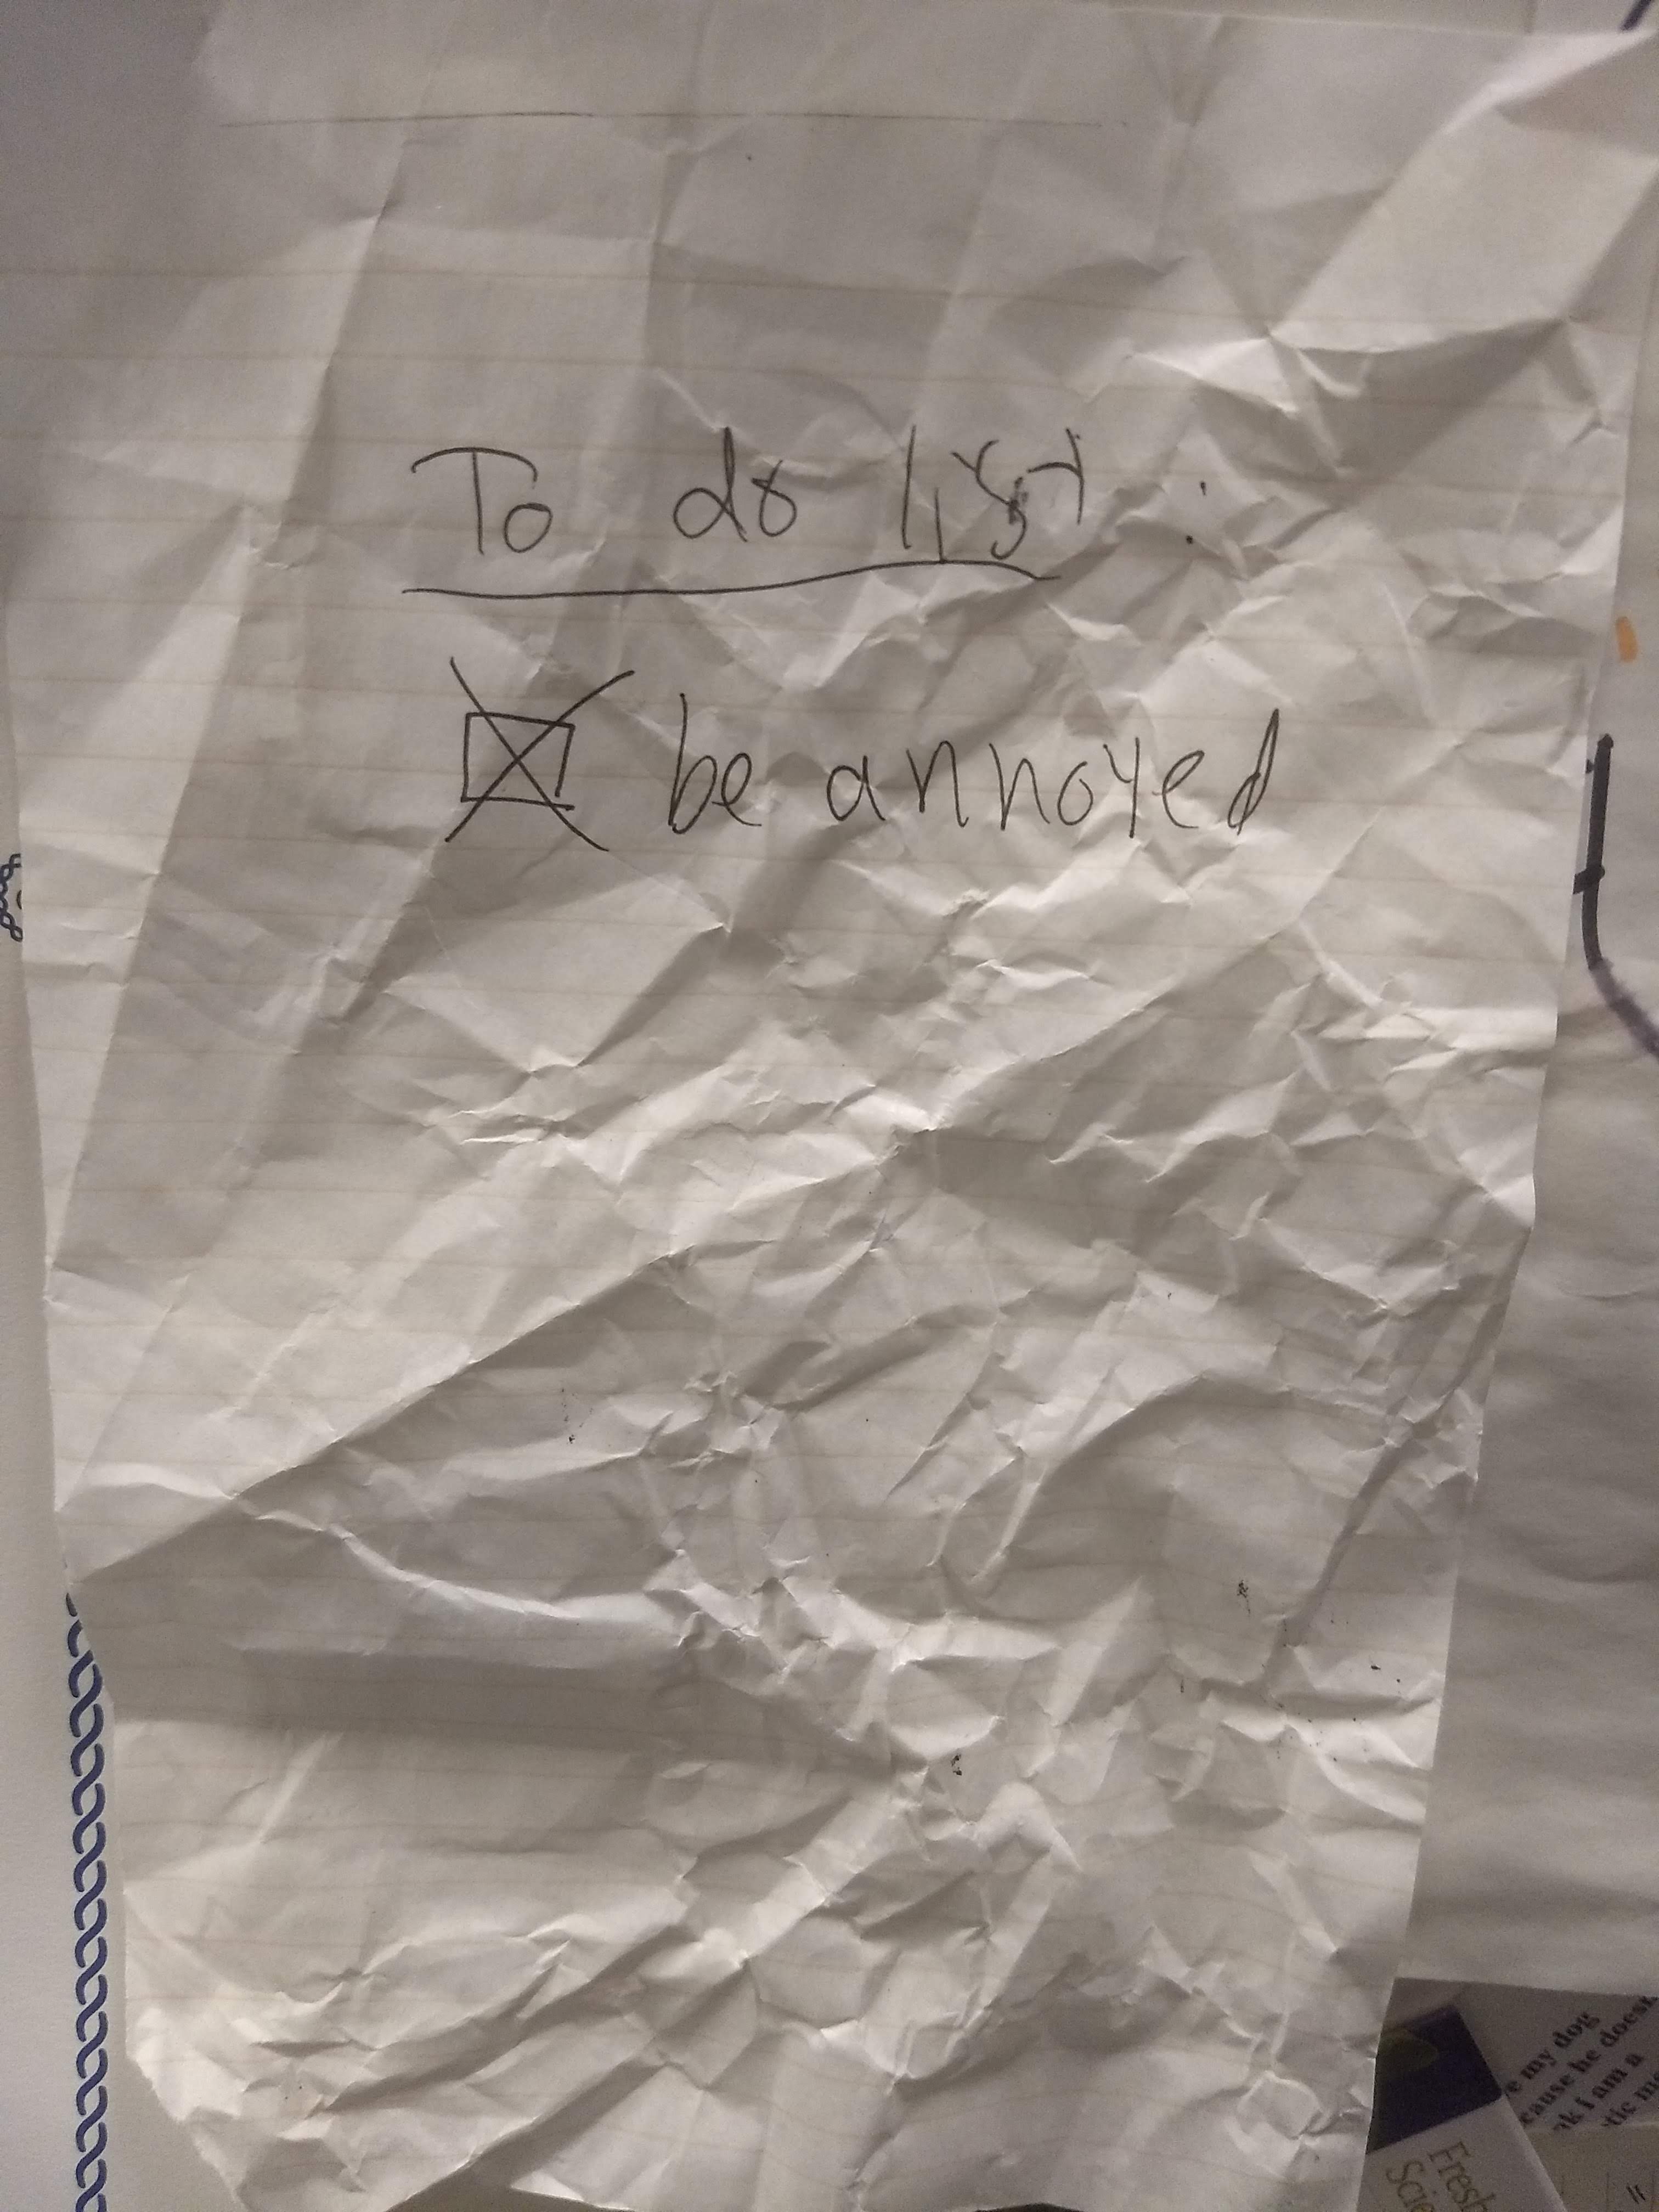 To do list :
☒ be annoyed
e my dog
cause he doesn
nk i am a
Fresh